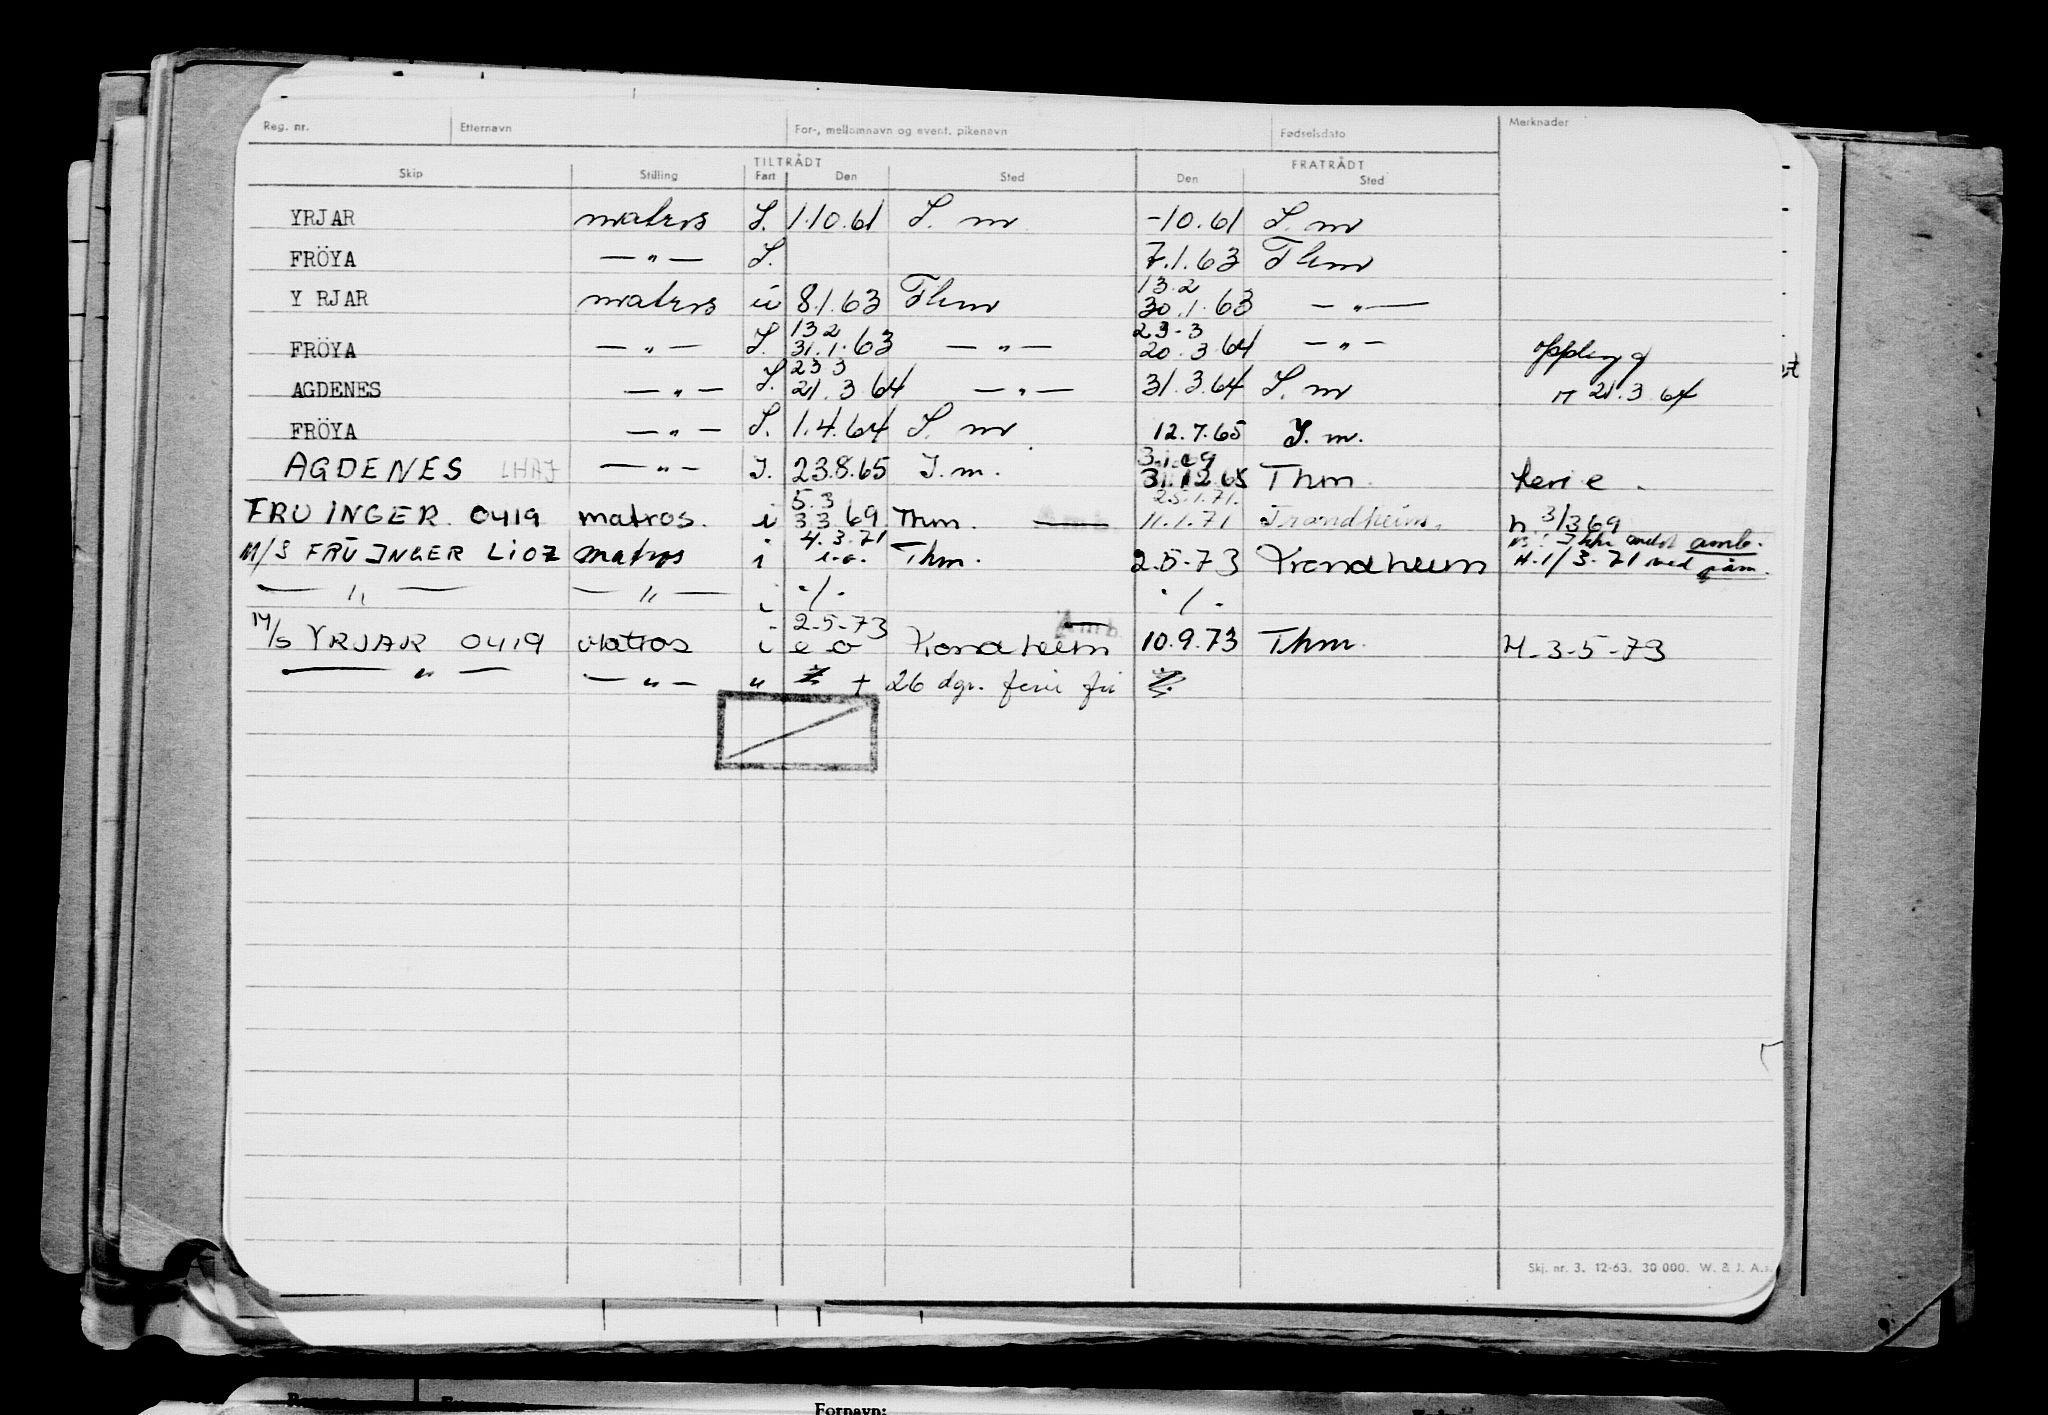 Reg. nr. Etternavn For-, mellomnavn og event. pikenavn Fødselsdato Merknader
TILTRÅDT FRATRÅDT
Skip Stilling Fart Den Sted Den Sted
YRJAR matros I. 1.10.61 S. m -10.61 S. m
FRÖYA — " — I. 7.1.63 Thm
13.2
Y RJAR matros i 8.1.63 Thm 30.1.63 — " —
13 2 23-3
FRÖYA — " — I. 31.1.63 — " — 20.3.64 — " —
23 3
AGDENES — " — I. 21.3.64 — " — 31.3.64 S. m 21.3.64
FRÖYA — " — I. 1.4.64 S. m 12.7.65 S. m.
3.1.69
AGDENES LHAJ — " — I. 23.8.65 S. m. 31.12.65 Thm. ferie.
5.3 25.1.71.
FRU INGER 0419 matros. i 3 3 69 Thm. Amb. 11.1.71 Trondheim. h. 3/3 69
4.3.71 amb.
M/S FRU INGER LIOZ matros i e.o. Thm. 2.5-73 Trondheim H.1/3-71 med påm.
— " — — " — i ./. ./.
2-5-73 Amb.
M/S YRJAR 0419 matros i e o Trondheim 10.9.73 Thm. H.3-5-73
— " — — " — " + 26 dgr. ferie fri
Skj. nr. 3. 12-63. 30 000. W. & J. A.s.
Fornavn: